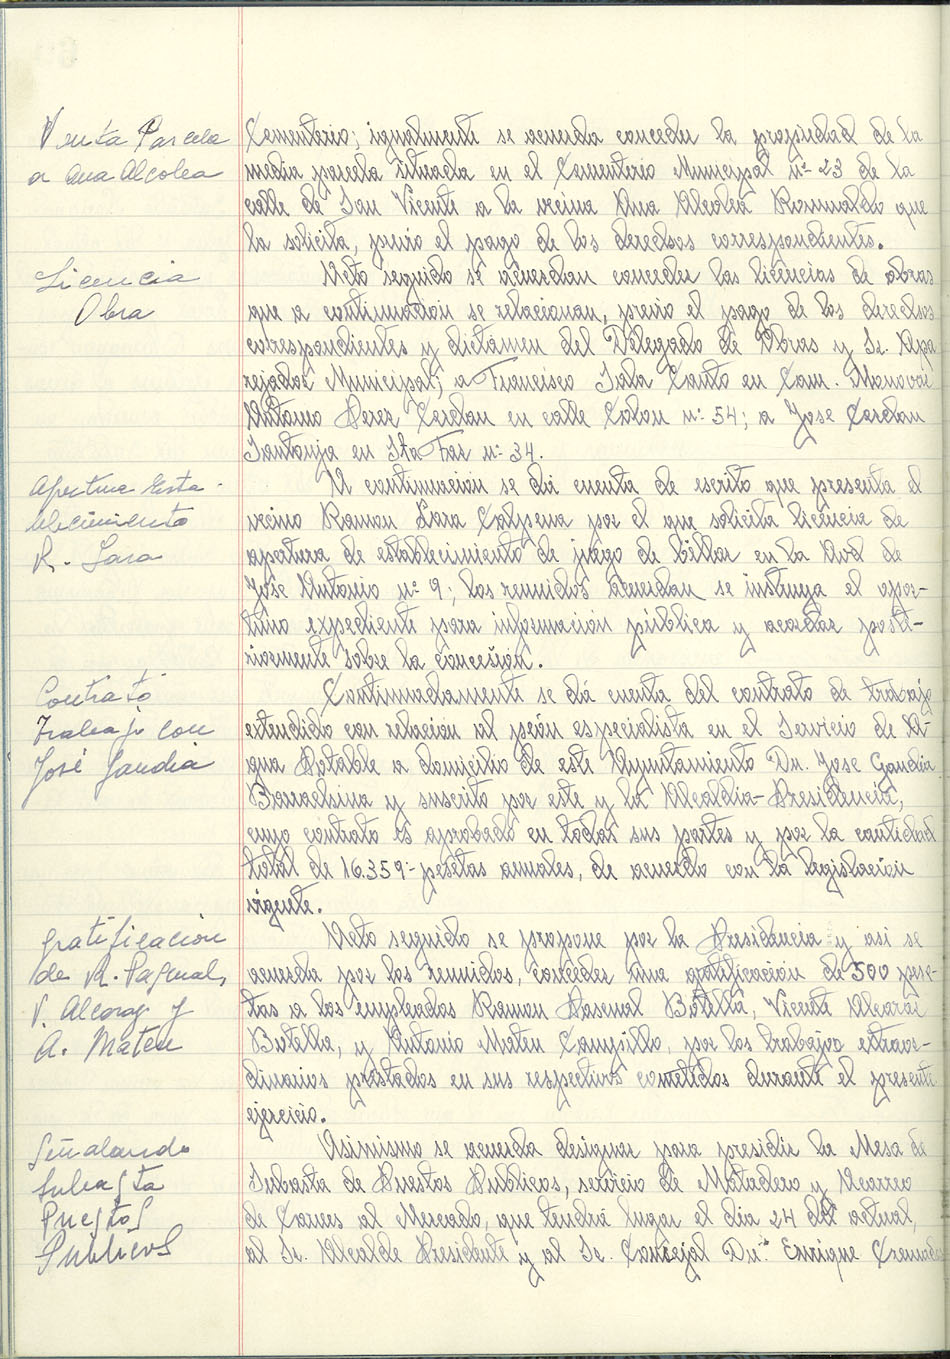 Venta Parcela
a Ana Alcolea
Cementerio; igualmente se acuerda conceder la propiedad de la
media parcela situada en el Cementerio Municipal nº 23 de la
calle de San Vicente a la vecina Ana Alcolea Romualdo que
la solicita, previo el pago de los derechos correspondientes.
Licencia
Obra
Acto seguido se acuerdan conceder las licencias de obras
que a continuación se relacionan, previo el pago de los derechos
correspondientes y dictámen del Delegado de Obras y Sr. Apa
rejador Municipal; a Francisco Sala Cantó en Cam. Monovar
Antonio Perez Cerdan en calle Colon nº 54; a Jose Cerdan
Santonja en Sta Faz nº 34.
Apertura Esta-
blecimiento
R. Lara
A continuación se dá cuenta de escrito que presenta el
vecino Ramon Lara Calpena por el que solicita licencia de
apertura de establecimiento de juego de billar en la Avd de
José Antonio nº 9; los reunidos acuerdan se instruya el opor-
tuno expediente para información pública y acordar poste-
riormente sobre la concesión.
Contrato
Trabajo con
José Gandia
Continuadamente se dá cuenta del contrato de trabajo
extendido con relación al peón especialista en el Servicio de A-
gua Potable a domicilio de este Ayuntamiento Dn. Jose Gandia
y suscrito por este y la Alcaldia-Presidencia,
cuyo contrato es aprobado en todas sus partes y por la cantidad
total de 16.359- pesetas anuales, de acuerdo con la legislación
vigente.
Gratificación
de R. Pascual,
V. Alcaraz y
A. Mateu
Acto seguido se propone por la Presidencia y asi se
acuerda por los reunidos, conceder una gratificación de 500 pese-
tas a los empleados Ramon Pascual Botella, Vicente Alcaraz
Botella, y Antonio Mateu Campillo, por los trabajos extraor-
dinarios prestados en sus respectivos cometidos durante el presente
ejercicio.
Señalando
Subasta
Puestos
Públicos
Asimismo se acuerda designar para presidir la Mesa de
Subasta de Puestos Publicos, servicio de Matadero y Acarreo
de Carnes al Mercado, que tendrá lugar el dia 24 del actual,
al Sr. Alcalde Presidente y al Sr. Concejal Dn. Enrique Cremades